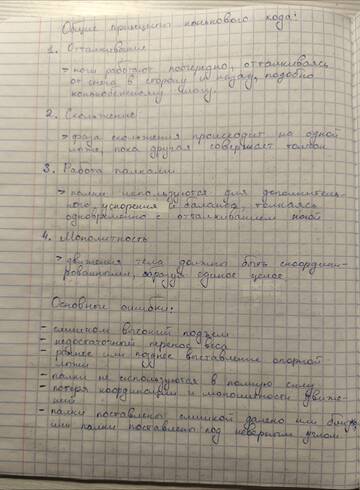 Общие принципы конькового хода:
1. Отталкивание
> ноги работают поочередно, отталкиваясь
от снега в сторону и назад, подобно
конькобежному шагу.
2. Скольжение:
> фаза скольжения происходит на одной
ноге, пока другая совершает толчок
3. Работа палками
> палки используются для дополнитель-
ного ускорения и баланса, толкаясь
одновременно с отталкиванием ногой
4. Монолитность
> движения тела должны быть скоордини-
рованными, образуя единое целое
Основные ошибки:
- слишком высокий подъем
- недостаточный перенос веса
- раннее или позднее выставление опорной
ноги
- палки не используются в полную силу
- потеря координации и монолитности движе-
ний
- палки поставлены слишком далеко или близко,
или палки поставлены под неверным углом